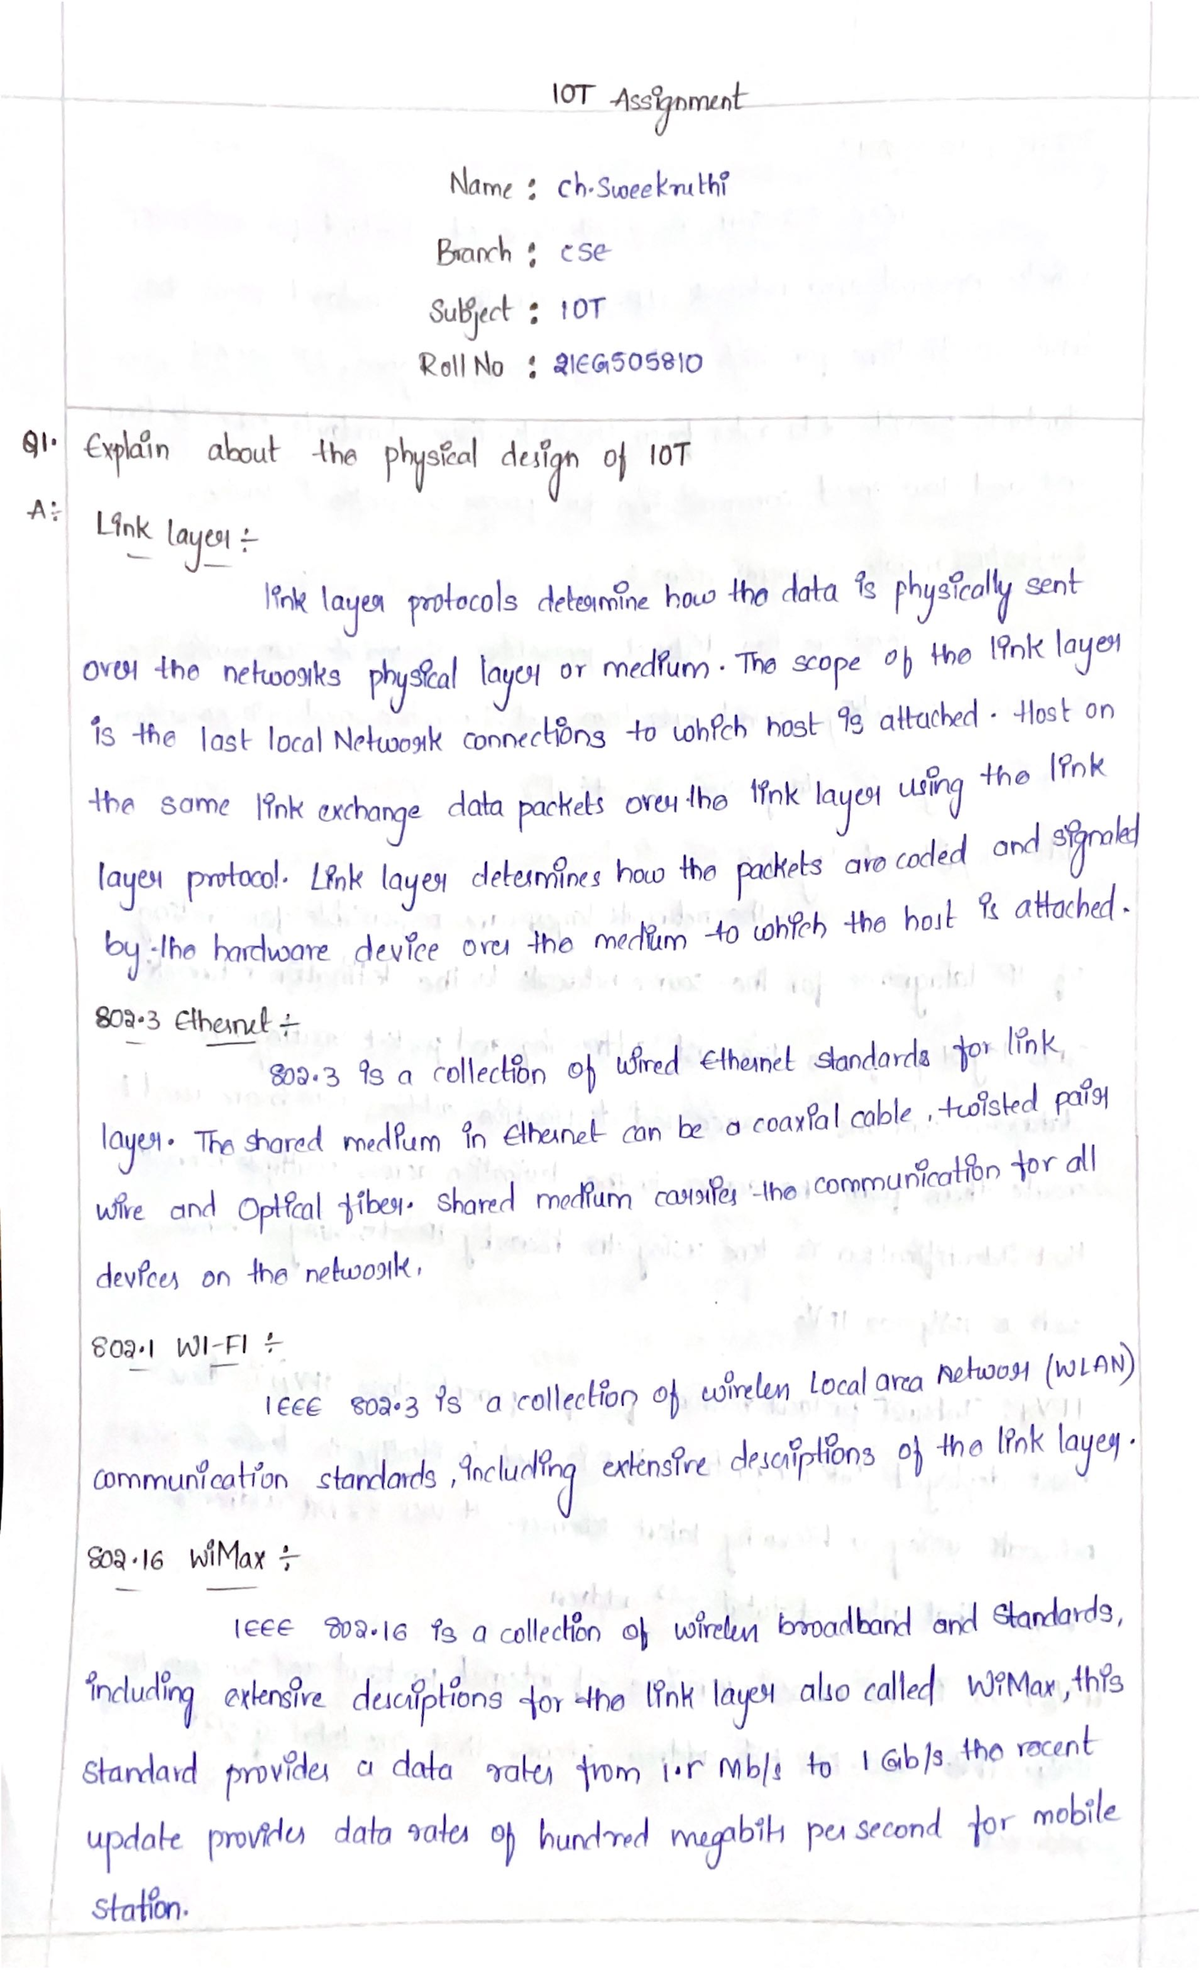 IOT Assignment
Name : ch.Sweekruthi
Branch : CSE
Subject : IOT
Roll No : 21EG505810
Q1. Explain about the physical design of IOT
A:
Link layer :-
link layer protocols determine how the data is physically sent
over the networks physical layer or medium. The scope of the link layer
is the last local Network connections to which host is attached. Host on
the same link exchange data packets over the link layer using the link
layer protocol. Link layer determines how the packets are coded and signaled
by the hardware device over the medium to which the host is attached.
802.3 Ethernet :-
802.3 is a collection of wired Ethernet standards for link
layer. The shared medium in Ethernet can be a coaxial cable, twisted pair
wire and Optical fiber. Shared medium carries the communication for all
devices on the network.
802.1 WI-FI :-
IEEE 802.3 is a collection of wireless Local area Network (WLAN)
communication standards, including extensive descriptions of the link layer.
802.16 WiMax :-
IEEE 802.16 is a collection of wireless broadband and Standards,
including extensive descriptions for the link layer also called WiMax, this
standard provides a data rates from 1.5 Mb/s to 1 Gb/s the recent
update provides data rates of hundred megabits per second for mobile
station.